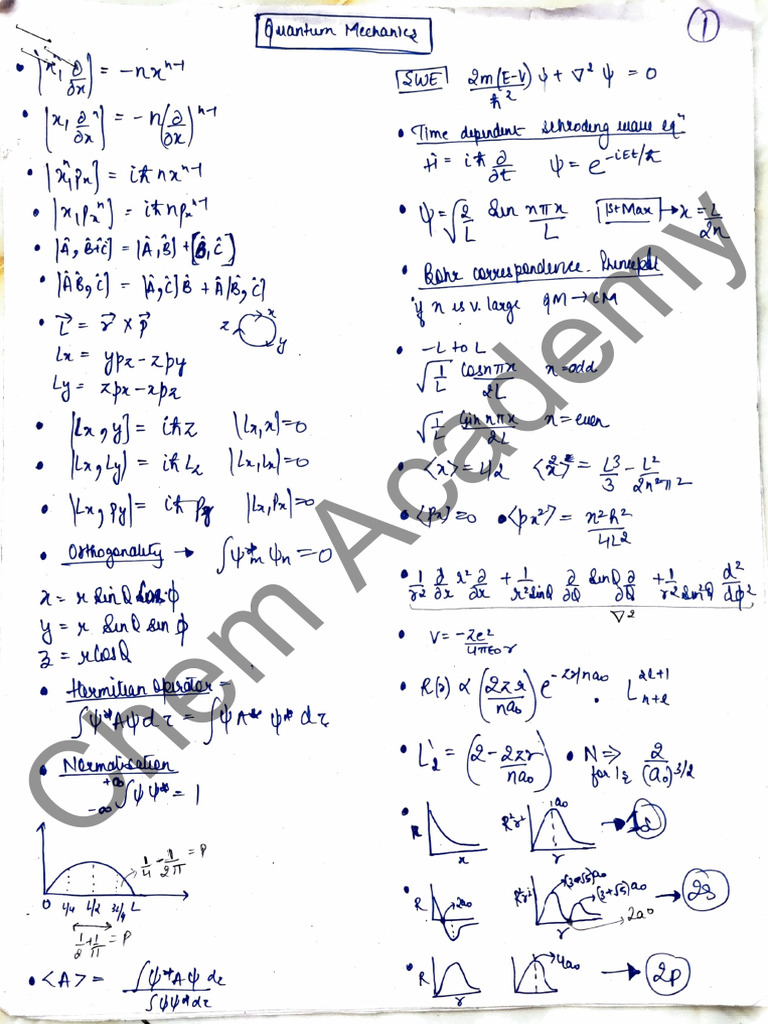 Quantum Mechanics
1
[x, ∂/∂x] = -nxⁿ⁻¹
[x, ∂ⁿ/∂x] = -n(∂/∂x)ⁿ⁻¹
[xⁿ, px] = iħnxⁿ⁻¹
[x, pxⁿ] = iħnpxⁿ⁻¹
[Â, B̂+Ĉ] = [Â, B̂] + [B̂, Ĉ]
[ÂB̂, Ĉ] = [Â, Ĉ]B̂ + Â[B̂, Ĉ]
L = r × p
z x y
Lx = ypz - zpy
Ly = zpx - xpz
[Lx, y] = iħz [Lx, x] = 0
[Lx, Ly] = iħLz [Lx, Lx] = 0
[Lx, py] = iħ [Lx, Px] = 0
Orthogonality → ∫ψ*m ψn = 0
x = r SinQ Cos φ
y = r SinQ sin φ
z = rCosQ
Hermitian operator =
∫ψ*Aψdτ = ∫ψA* ψ* dτ
Normalisation
-∞ ∫ +∞ ψψ* = 1
1/4 - 1/2π = P
0 L/4 L/2 3L/4 L
1/2 + 1/π = P
<A> = ∫ψ*Aψ dτ / ∫ψψ*dτ
SWE 2m(E-V)/ħ² ψ + ∇²ψ = 0
Time dependent schroding wave eqⁿ
H = iħ ∂/∂t ψ = e^-iEt/ħ
ψ = √2/L Sin nπx/L 1st Max → x = L/2n
Bohr correspondence. Principle
if n is v. large QM → CM
-L to L
√1/L cosnπx/2L n = odd
√1/L Sin nπx/2L n = even
<x> = L/2 <x²> = L³/3 - L²/2n²π²
<Px> = 0 <px²> = n²h²/4L²
1/r² ∂/∂r r² ∂/∂r + 1/r²sinQ ∂/∂Q SinQ ∂/∂Q + 1/r²Sin²Q d²/dφ²
∇²
V = -Ze²/4πε₀r
R(r) ∝ (2Zr/na₀) e^-Zr/na₀ . L^2l+1 n+l
L₂¹ = (2 - 2Zr/na₀) N ⇒ 2/(a₀)^3/2
for 1s
R x R²r² a₀ r → 1s
R 2a₀ R²r² (3-√5)a₀ (3+√5)a₀ r 2a₀ → 2s
R r 4a₀ → 2p
Chem Academy